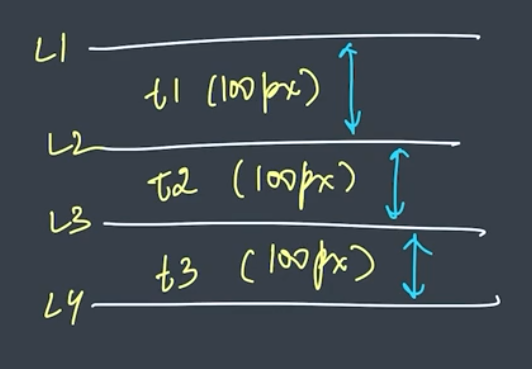 L1
t1 (100px)
L2
t2 (100px)
L3
t3 (100px)
L4